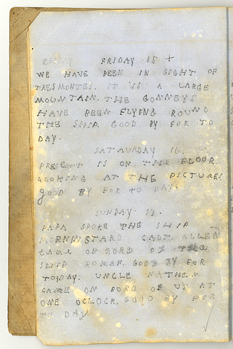 FRIDAY 15 +
WE HAVE BEEN IN SIGHT OF
A LARGE
MOUNTAIN. THE GONNEYS
HAVE BEEN FLYING ROUND
THE SHIP GOOD BY FOR TO
DAY.
SATAURDAY 16.
PRESCOTT IS ON THE FLOOR
LOOKING AT THE PICTURES
GOOD BY FOR TO DAY.
SUNDAY 17.
PAPA SPOKE THE SHIP
MORNINGSTAR CAPT ALLEN
CAME ON BORD OF THE
SHIP ROMAN. GOOD BY FOR
TODAY. UNCLE NATHEN
CAME ON BORD OF US AT
ONE OCLOCK. GOOD BY FOR
TO DAY